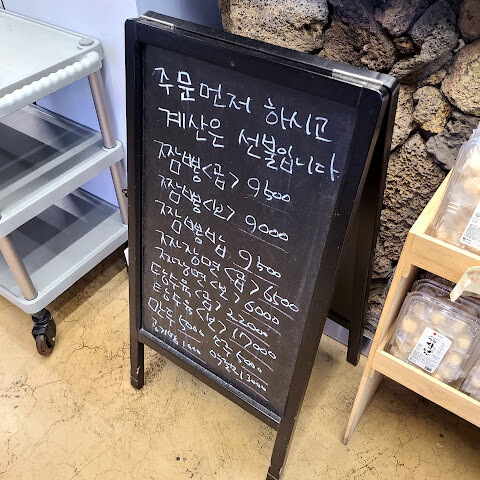 주문먼저 하시고
계산은 선불입니다
짬뽕<곱> 9500
짬뽕<보> 9000
짬뽕밥 9500
짜장면<곱> 6500
짜장면<보> 6000
탕수육<곱> 22000
탕수육<보> 17000
맥주 5000 소주 5000
공기밥 1000 3000